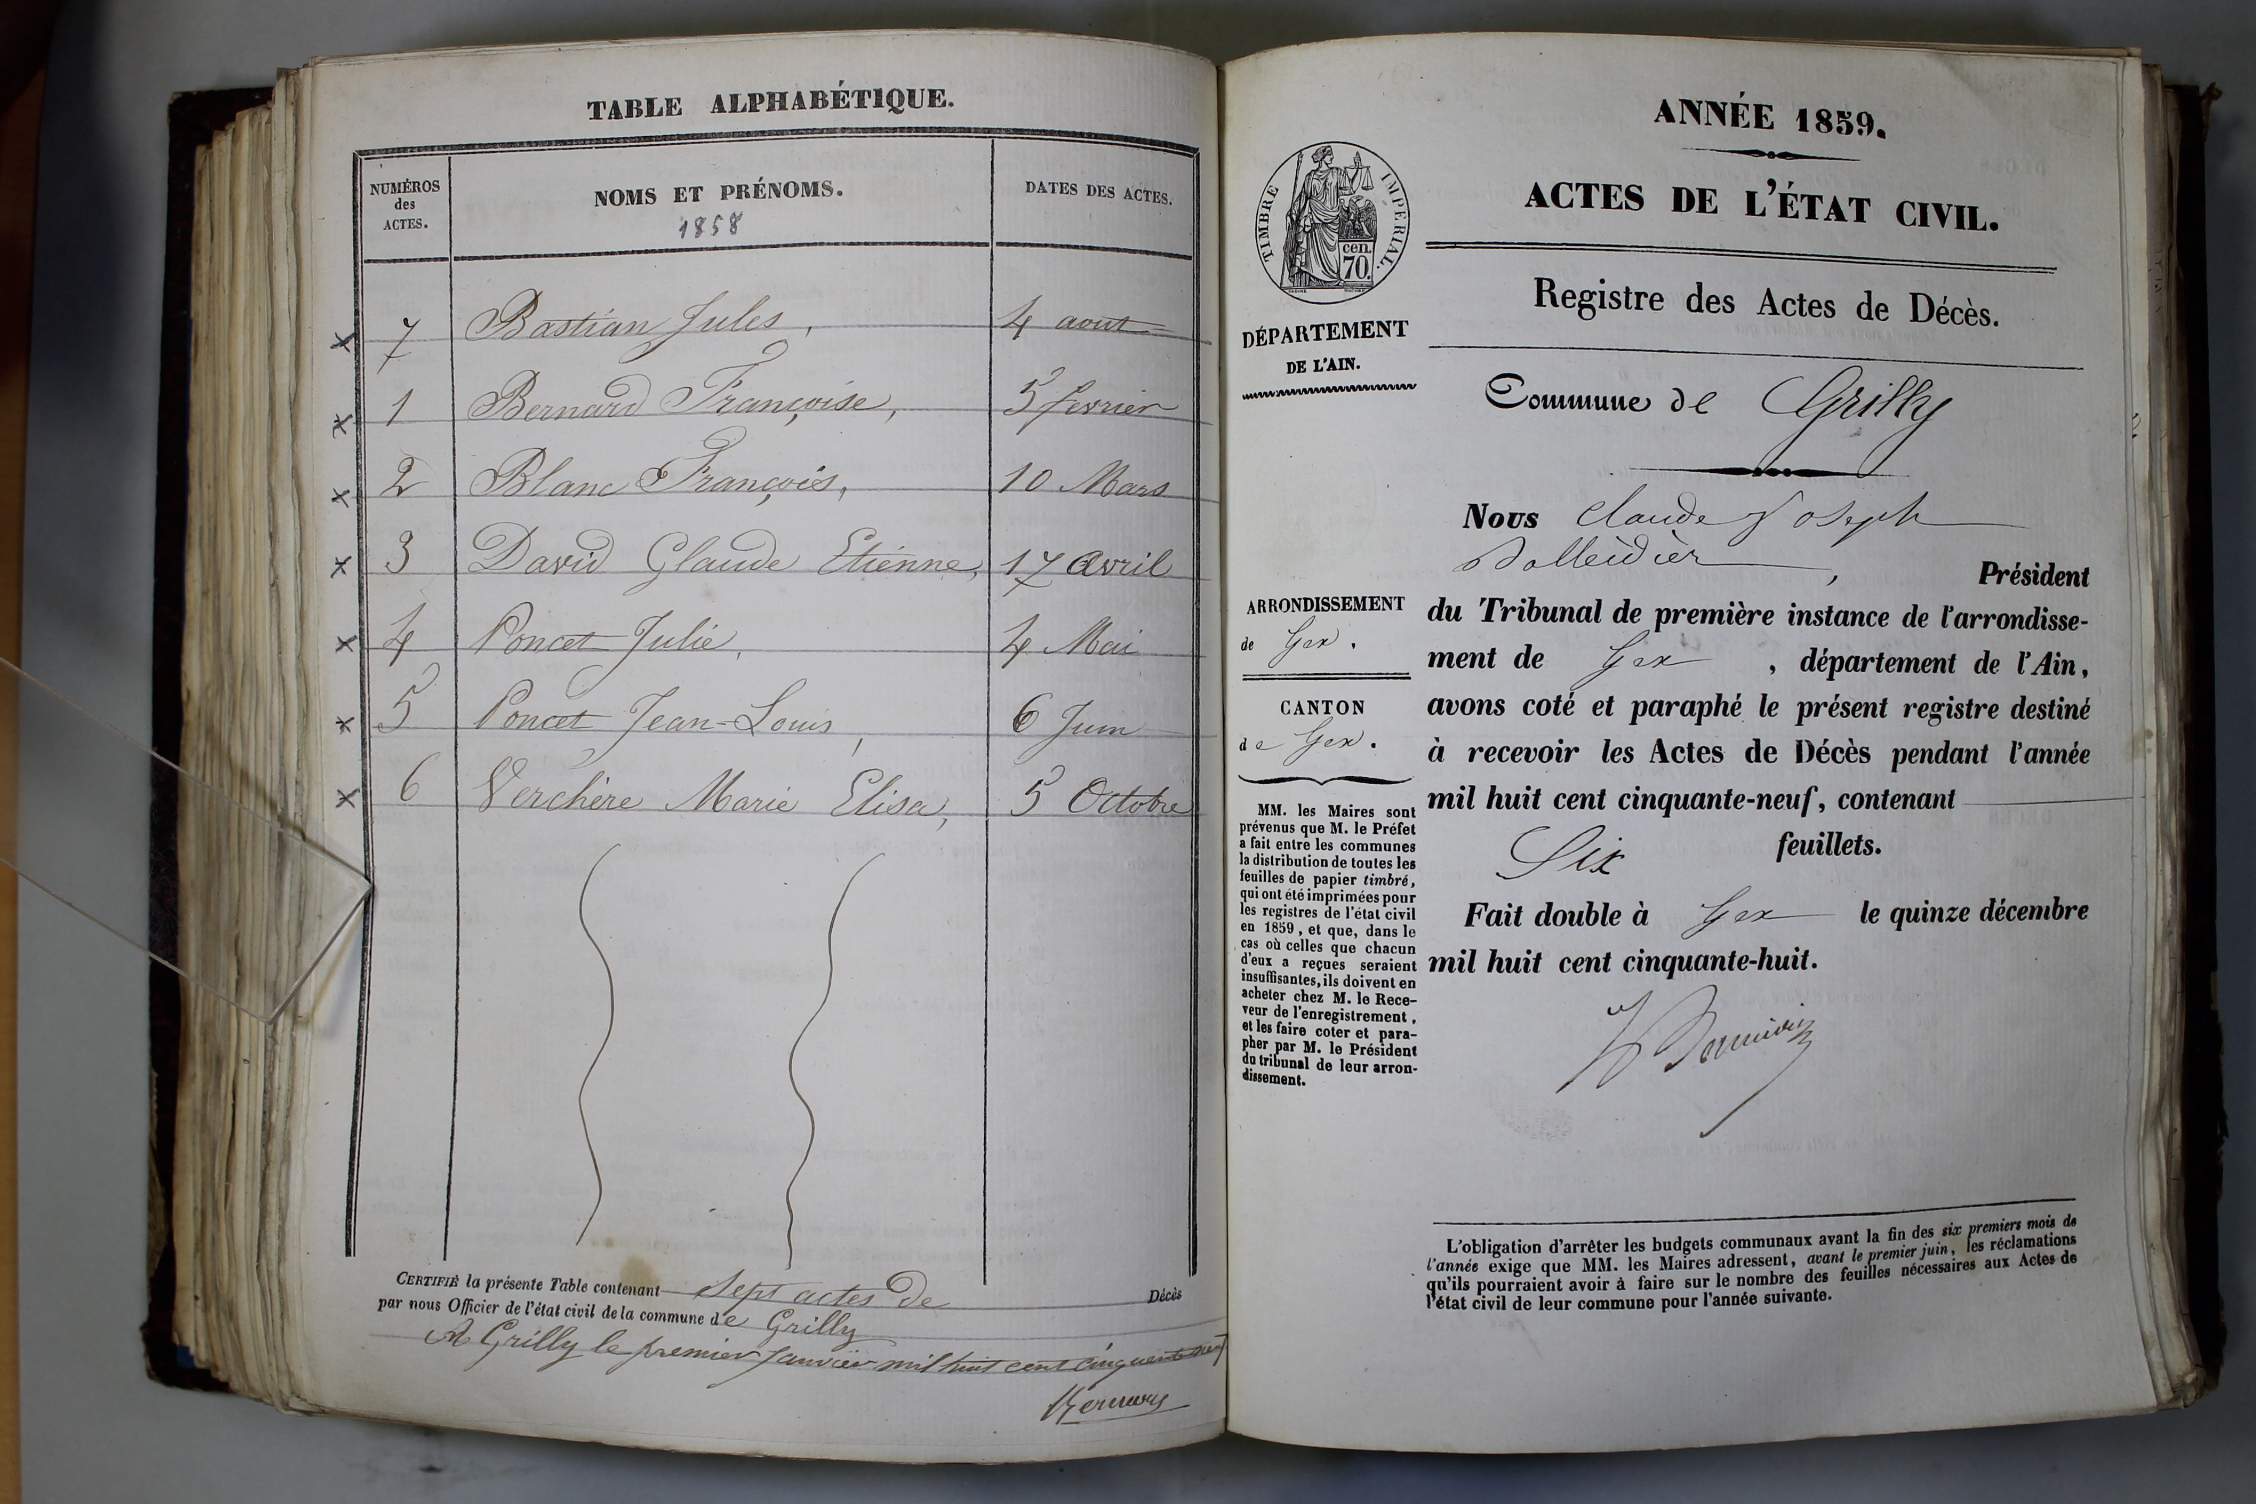 TABLE ALPHABÉTIQUE.
NUMÉROS des ACTES. NOMS ET PRÉNOMS. DATES DES ACTES.
1858
7 Bastian Jules, 4 aout
1 Bernard Françoise, 5 fevrier
2 Blanc François, 10 Mars
3 David Claude Etienne, 17 Avril
4 Poncet Julie, 4 Mai
5 Poncet Jean-Louis, 6 Juin
6 Verchère Marie Elisa, 5 Octobre
CERTIFIÉ la présente Table contenant sept actes de Décès
par nous Officier de l'état civil de la commune de Grilly
A Grilly le premier Janvier mil huit cent cinquante neuf
ANNÉE 1859.
ACTES DE L'ÉTAT CIVIL.
TIMBRE IMPÉRIAL.
cen.
70.
Registre des Actes de Décès.
DÉPARTEMENT
DE L'AIN.
Commune de Grilly
Nous Claude Joseph
, Président
du Tribunal de première instance de l'arrondisse-
ment de Gex, département de l'Ain,
avons coté et paraphé le présent registre destiné
à recevoir les Actes de Décès pendant l'année
mil huit cent cinquante-neuf, contenant
Six feuillets.
Fait double à Gex le quinze décembre
mil huit cent cinquante-huit.
ARRONDISSEMENT
de Gex.
CANTON
de Gex.
MM. les Maires sont
prévenus que M. le Préfet
a fait entre les communes
la distribution de toutes les
feuilles de papier timbré,
qui ont été imprimées pour
les registres de l'état civil
en 1859, et que, dans le
cas où celles que chacun
d'eux a reçues seraient
insuffisantes, ils doivent en
acheter chez M. le Rece-
veur de l'enregistrement,
et les faire coter et para-
pher par M. le Président
du tribunal de leur arron-
dissement.
L'obligation d'arrêter les budgets communaux avant la fin des six premiers mois de
l'année exige que MM. les Maires adressent, avant le premier juin, les réclamations
qu'ils pourraient avoir à faire sur le nombre des feuilles nécessaires aux Actes de
l'état civil de leur commune pour l'année suivante.